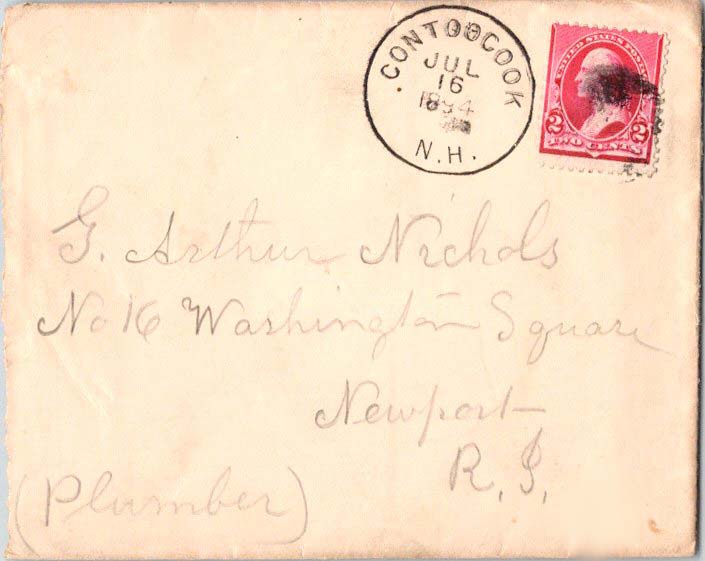 CONTOOCOOK
JUL
16
1894
N.H.
UNITED STATES POSTAGE
2 2
TWO CENTS
G. Arthur Nichols
No 16 Washington Square
Newport
R. I.
(Plumber)